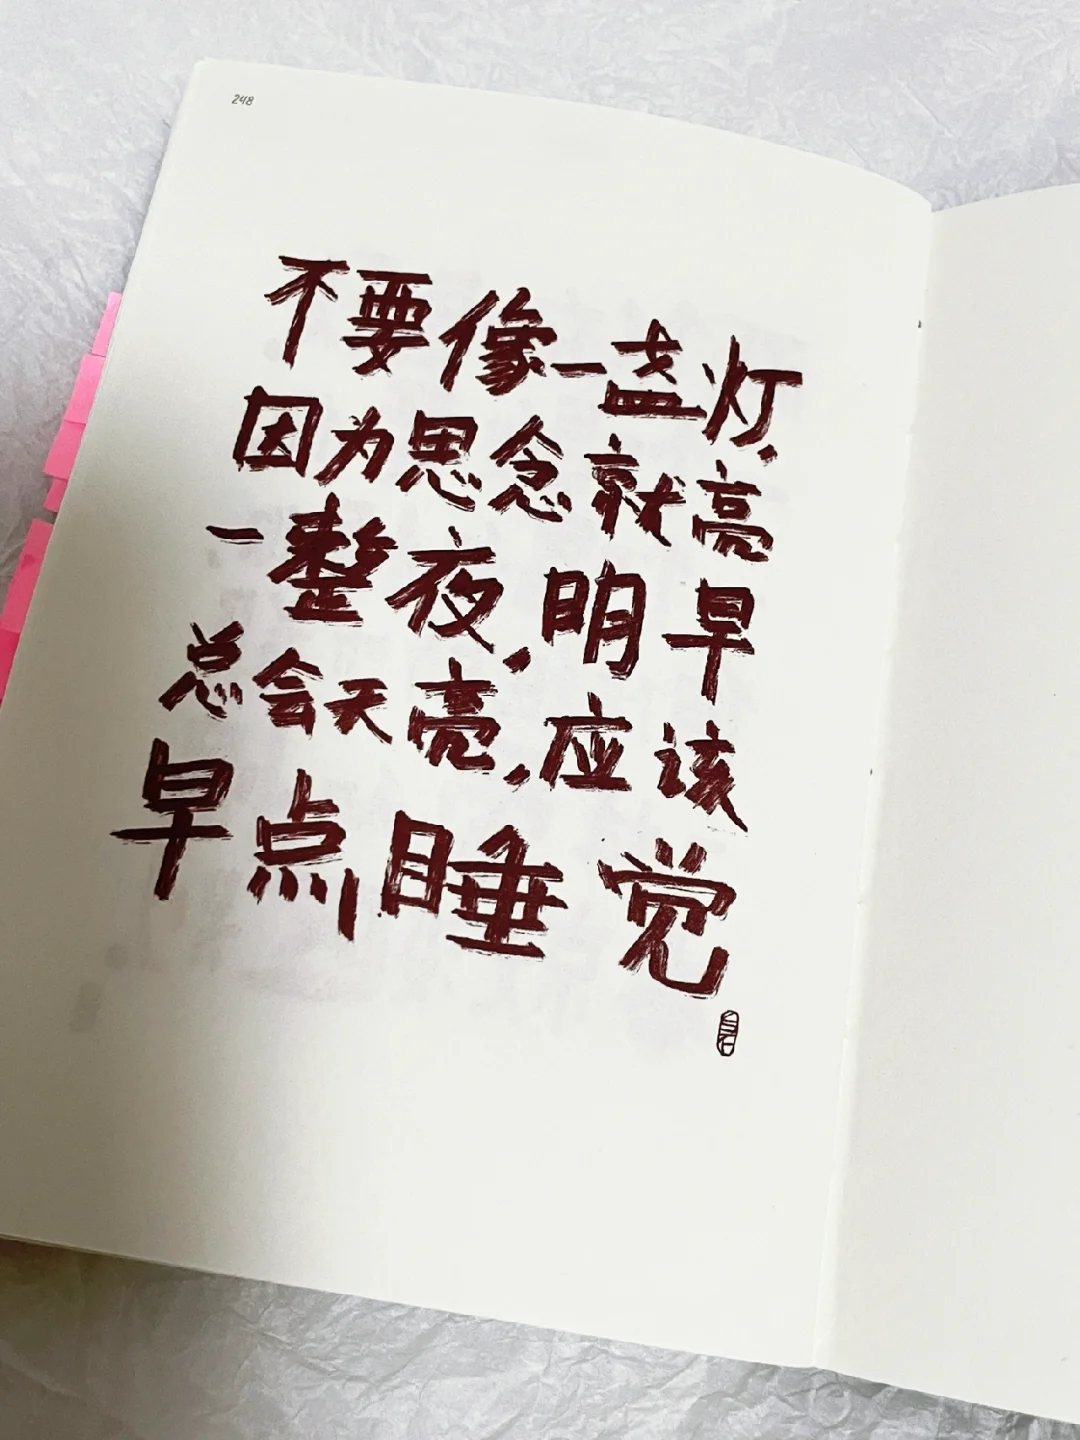 248
不要像一盏灯，
因为思念就亮
一整夜，明早
总会天亮，应该
早点睡觉